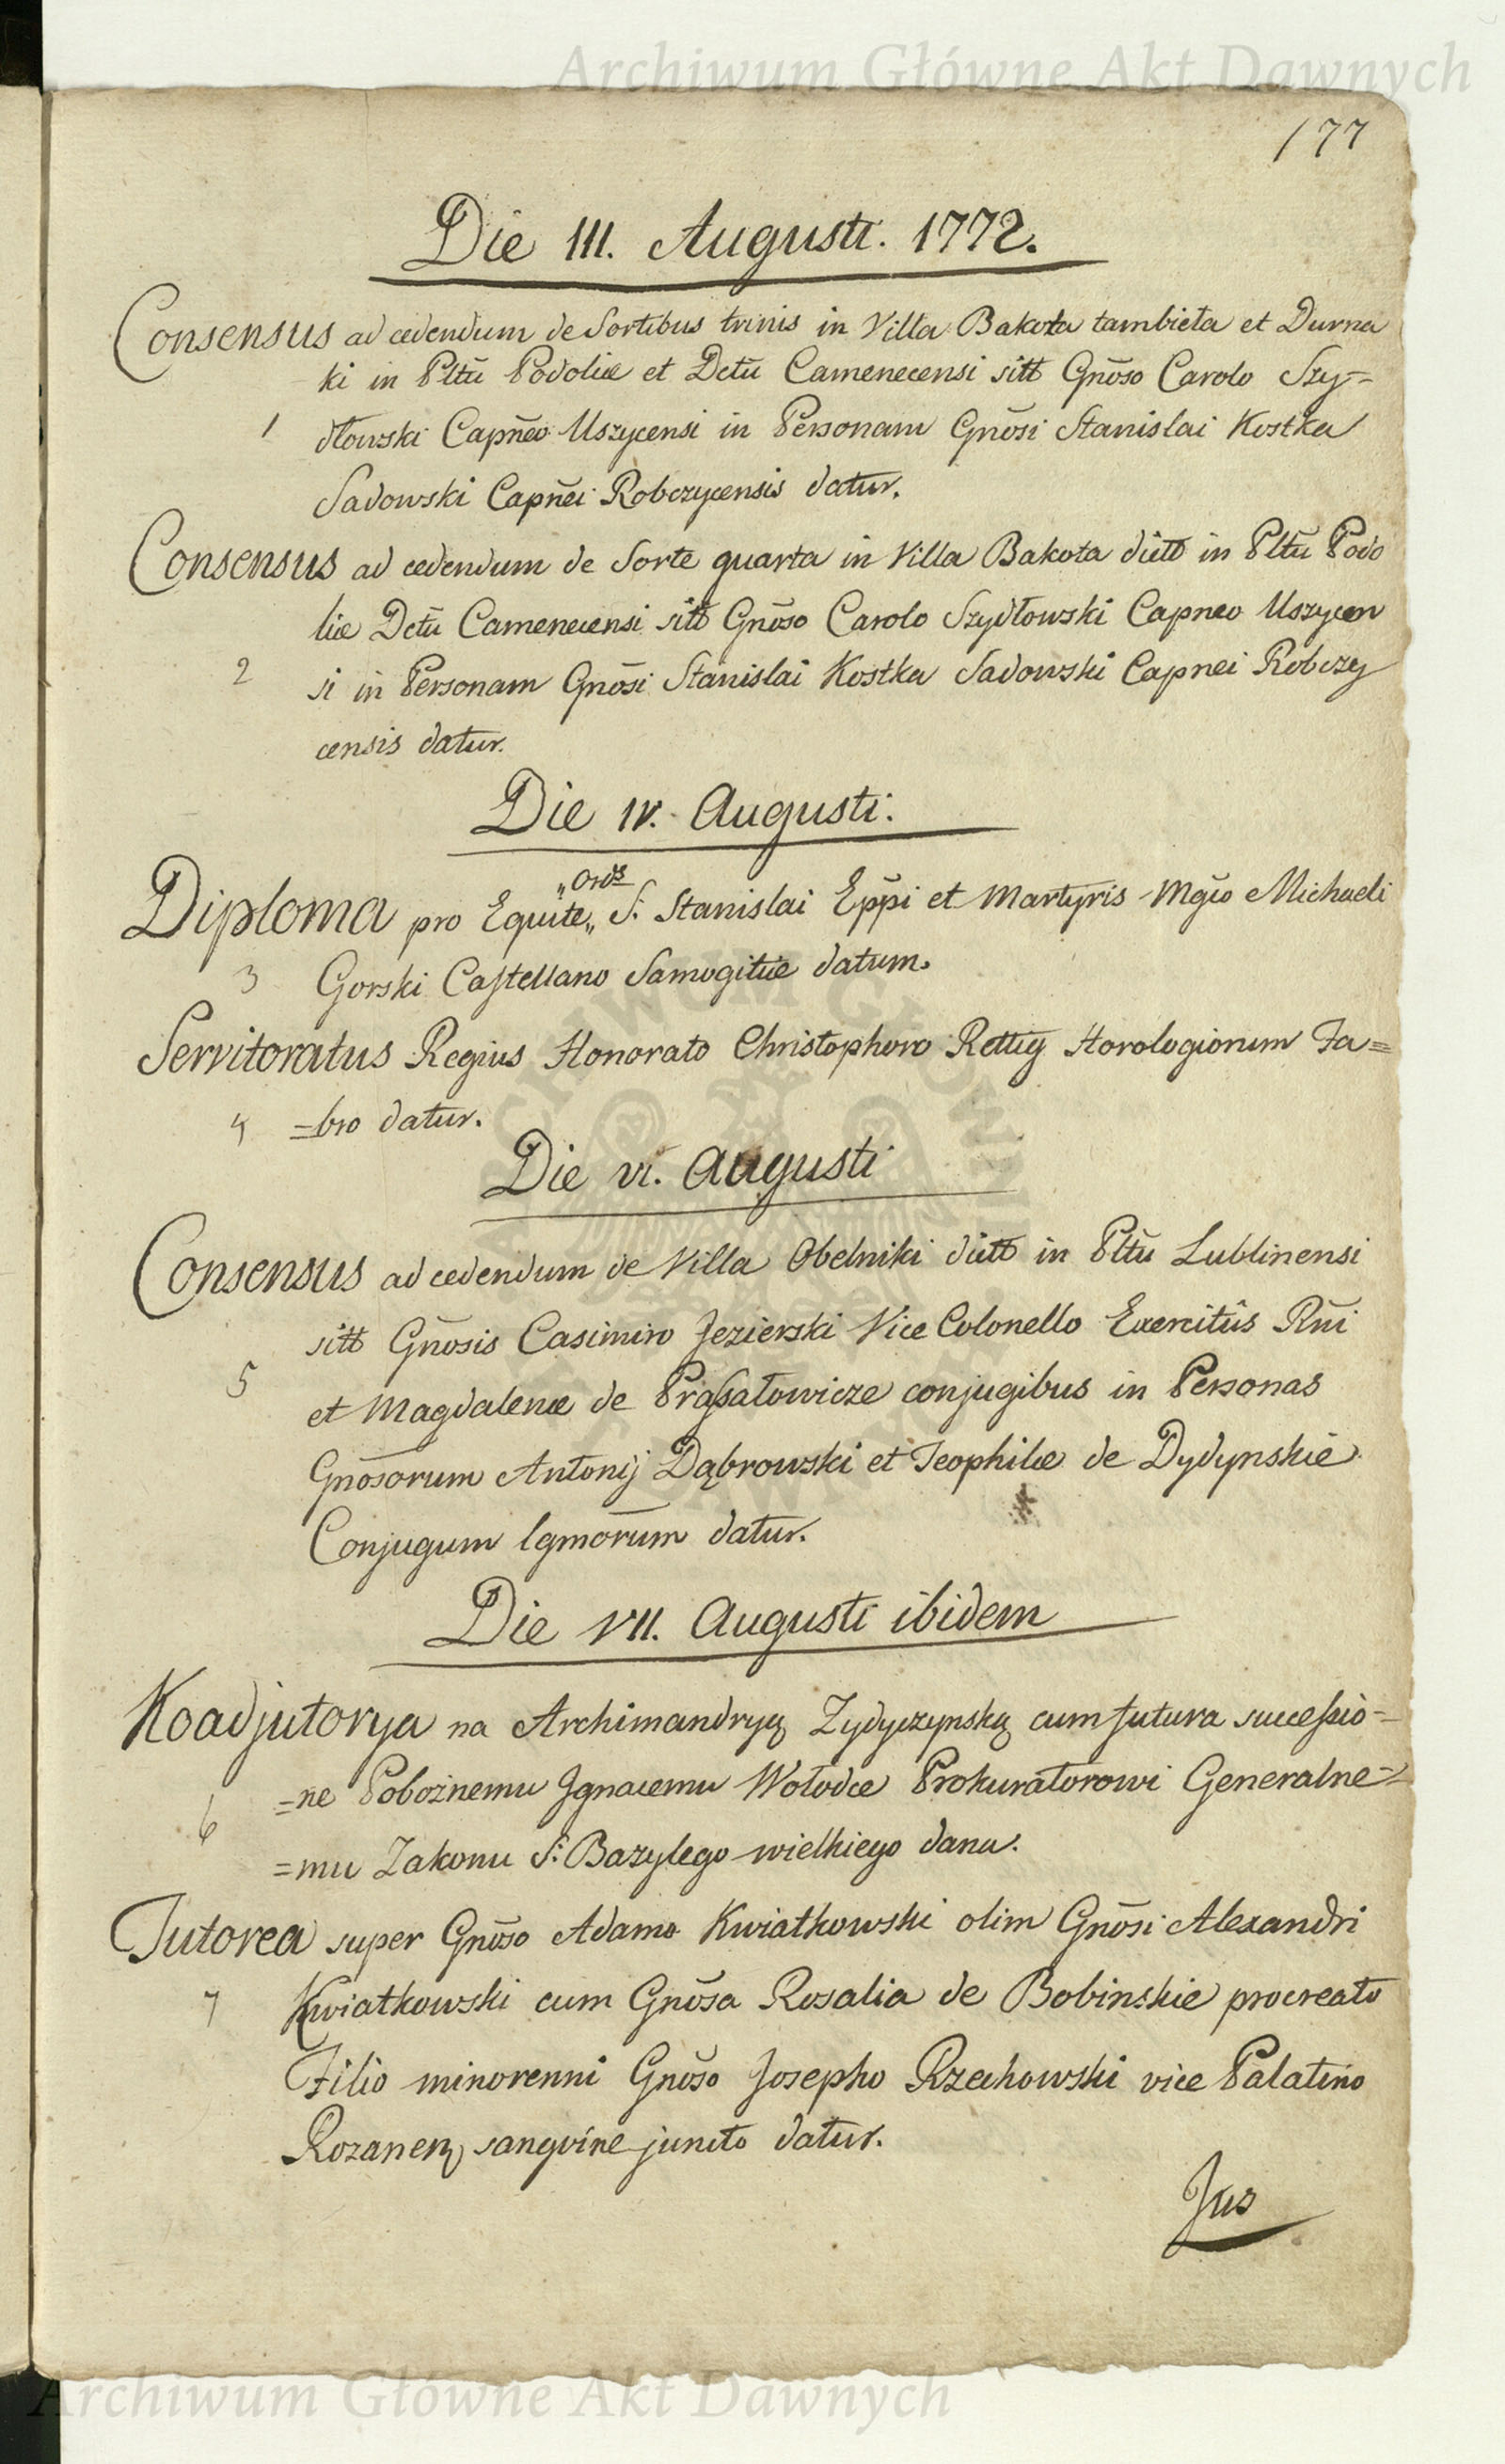 Archiwum Główne Akt Dawnych
177
Die III. Augusti. 1772.
Consensus ad cedendum de Sortibus trinis in Villa Bakota tambieta et Durna
ki in Pltū Podoliæ et Dctū Camenecensi sitt Gnōso Carolo Szy=
1 dłowski Capnēo Uszycensi in Personam Gnōsi Stanislai Kostka
Sadowski Capnēi Robczycensis datur.
Consensus ad cedendum de Sorte quarta in Villa Bakota dictt in Pltū Podo
liæ Dctū Camenecensi sitt Gnōso Carolo Szydłowski Capneo Uszycen
2 si in Personam Gnōsi Stanislai Kostka Sadowski Capnei Robczy
censis datur.
Die IV. Augusti.
„Ords
Diploma pro Equite„ S. Stanislai Eppi et Martyris Mgco Michaeli
3 Gorski Castellano Samogitiæ datum.
Servitoratus Regius Honorato Christophoro Rettig Horologiorum Fa=
4 =bro datur.
Die VI. Augusti
Consensus ad cedendum de Villa Obelniki dictt in Pltū Lublinensi
sitt Gnōsis Casimiro Jezierski Vice Colonello Exercitûs Rni
5 et Magdalenæ de Prassałowicze conjugibus in Personas
Gnōsorum Antonij Dąbrowski et Teophilæ de Dydynskie
Conjugum lgmorūm datur.
Die VII. Augusti ibidem
Koadjutorya na Archimandryą Zydyczynską cum futura successio=
6 =ne Pobożnemu Jgnacemu Wołodce Prokuratorowi Generalne=
=mu Zakonu S: Bazylego wielkiego dana.
Tutorea super Gnōso Adamo Kwiatkowski olim Gnōsi Alexandri
7 Kwiatkowski cum Gnōsa Rosalia de Bobinskie procreato
Filio minorenni Gnōso Josepho Rzechowski vice Palatino
Rozanen sangvine juncto datur.
Jus
Archiwum Główne Akt Dawnych